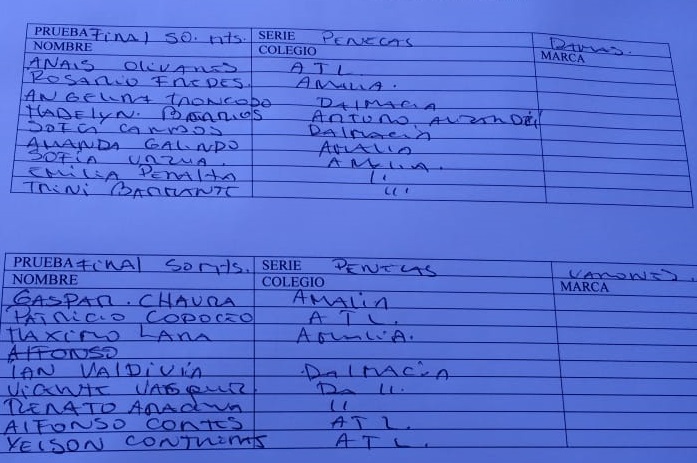 PRUEBA FINAL 50. mts. SERIE PENECAS Damas.
NOMBRE COLEGIO MARCA
ANAIS OLIVARES ATL
ROSARIO FREDES. AMALIA.
ANGELINA TRONCOSO DALMACIA
MADELYN. BARRIOS ARTURO
SOFIA CAMPOS DALMACIA
AMANDA GALINDO AMALIA
SOFIA URZUA. AMALIA.
EMILIA PERALTA 11.
TRINI 111
PRUEBA FINAL 50 mts. SERIE PENECAS VARONES.
NOMBRE COLEGIO MARCA
GASPAR. CHAURA AMALIA
PATRICIO CODOCEO ATL.
MAXIMO LARA AMALIA.
ALFONSO
IAN VALDIVIA DALMACIA
VICENTE VASQUEZ. Da 11.
RENATO 11
ALFONSO CORTES ATL.
YEISON CONTRERAS ATL.